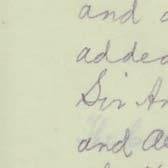 and
added
Sir An
and